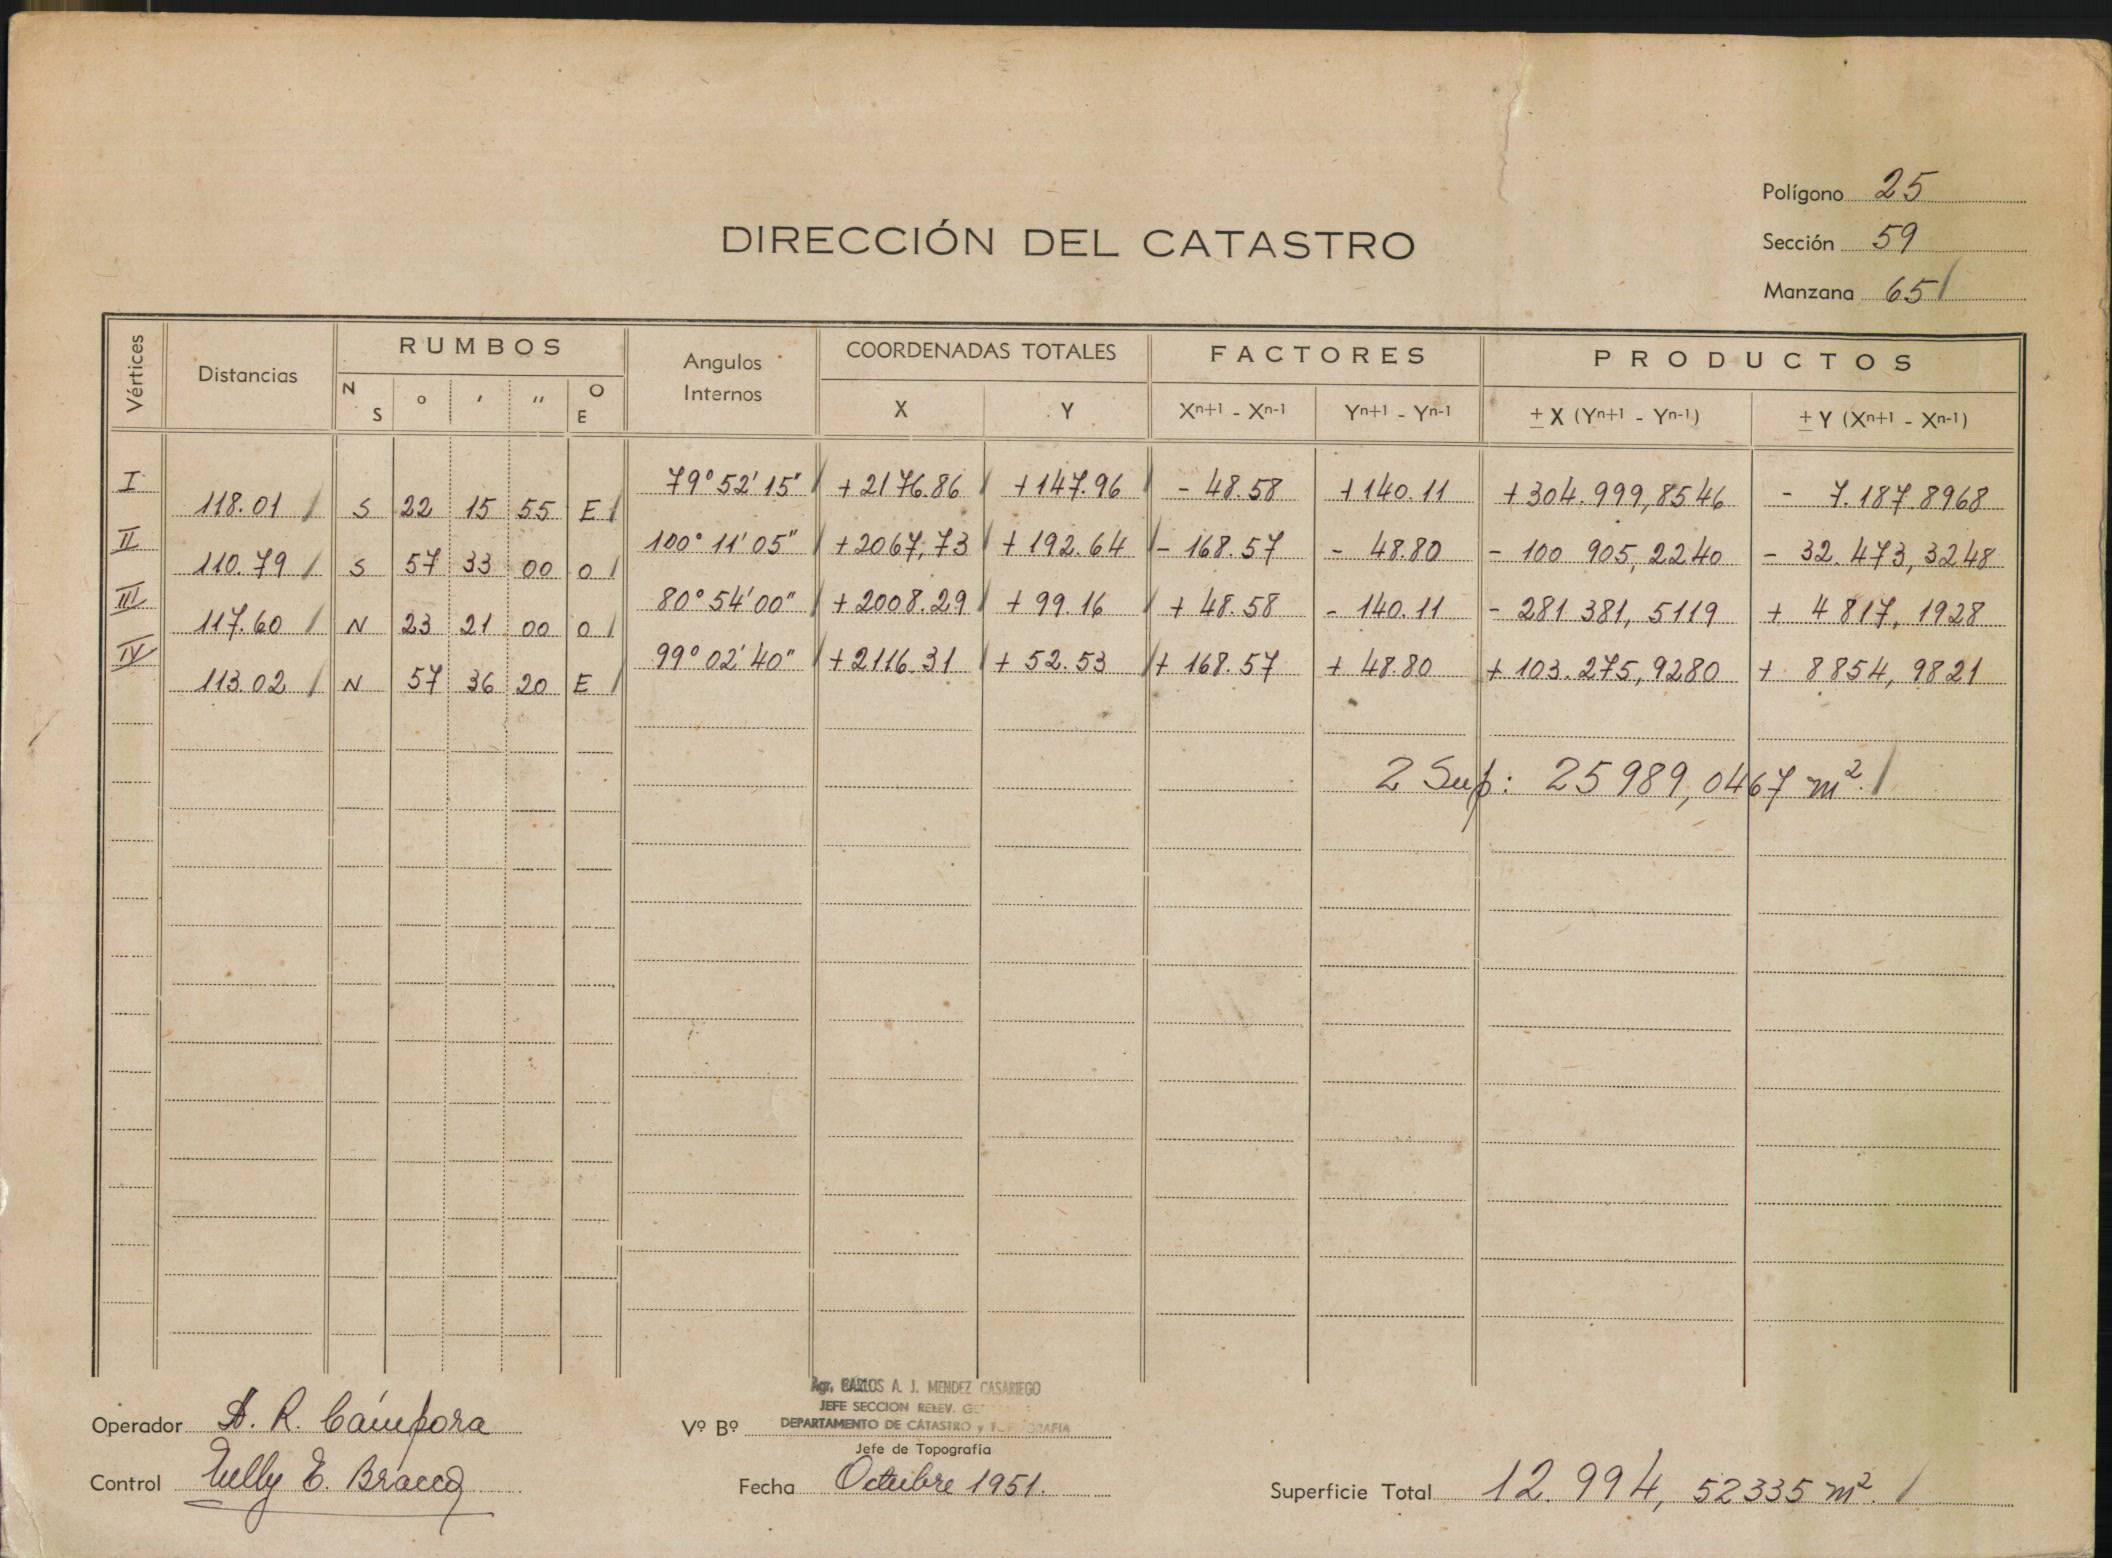 Polígono 25
DIRECCIÓN DEL CATASTRO
Sección 59
Manzana 65
Vértices Distancias RUMBOS Angulos Internos COORDENADAS TOTALES FACTORES PRODUCTOS
N S o ' '' O E X Y Xn+1 - Xn-1 Yn+1 - Yn-1 ± X (Yn+1 - Yn-1) ± Y (Xn+1 - Xn-1)
I 79° 52' 15" +2176.86 +147.96 - 48.58 +140.11 +304.999,8546 - 7.187.8968
118.01 S 22 15 55 E
II 100° 11' 05" +2067,73 +192.64 - 168.57 - 48.80 - 100 905,2240 - 32.473,3248
110.79 S 57 33 00 O
III 80° 54' 00" +2008.29 + 99.16 + 48.58 - 140.11 - 281 381, 5119 + 4 817, 1928
117.60 N 23 21 00 O
IV 99° 02' 40" +2116.31 + 52.53 + 168.57 + 48.80 + 103.275,9280 + 8854, 9821
113.02 N 57 36 20 E
2 Sup: 25989,0467 m².
Agr. CARLOS A. J. MENDEZ CASARIEGO
JEFE SECCION RELEV.
Operador A. R. Cámpora Vº Bº DEPARTAMENTO DE CATASTRO y TOPOGRAFIA
Jefe de Topografía
Control E. Fecha Octubre 1951. Superficie Total 12.994, 52335 m².